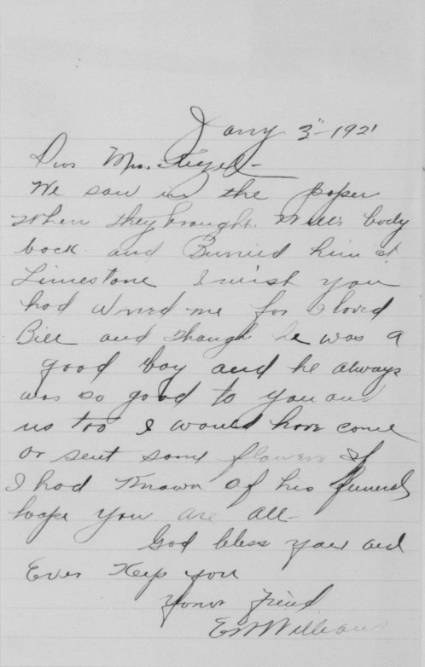 Jany 3" 1921
Dear Mrs.
We saw in the paper
when they brought Will's body
back and Buried him at
Limestone I wish you
had wired me for I loved
Bill and though he was a
good boy and he always
was so good to you and
us too I would have come
or sent some flowers If
I had known of his funeral
hope you are all-
God bless you and
Ever Keep you
Your Friend
E M Williams